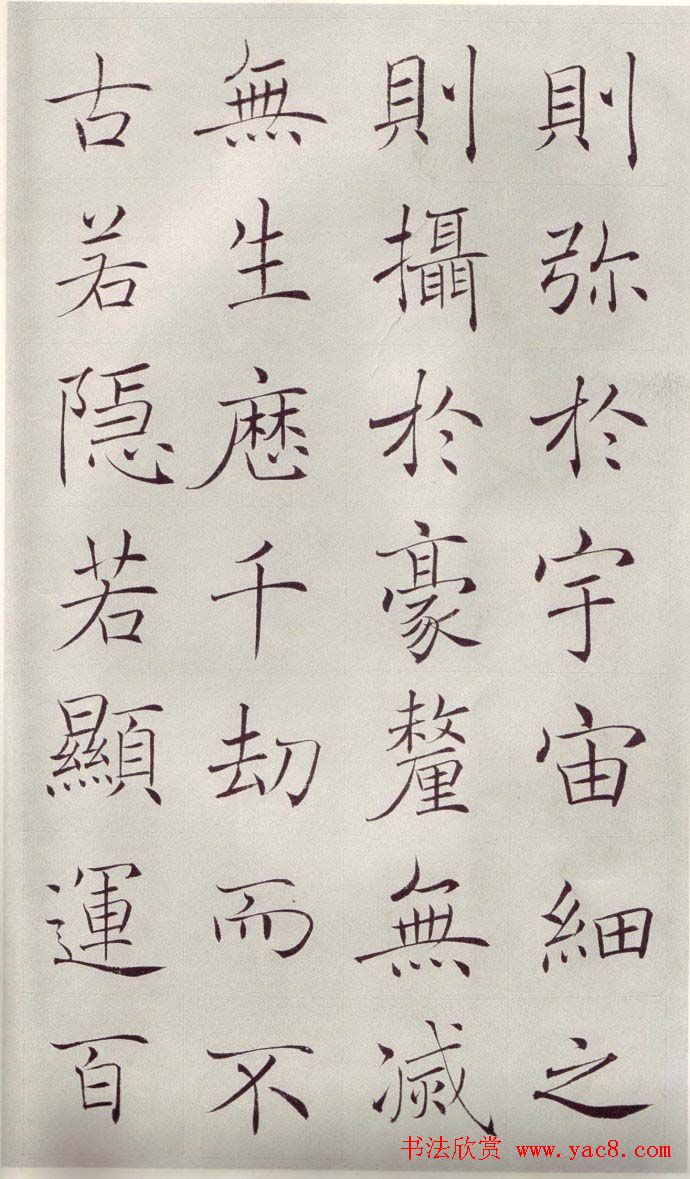 則弥於宇宙細之
則攝於豪釐無滅
無生歷千劫而不
古若隱若顯運百
书法欣赏 www.yac8.com